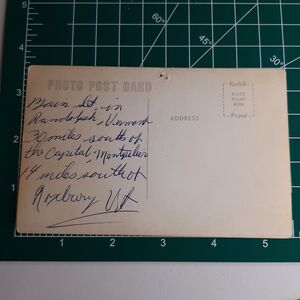 PHOTO POST CARD
Main St. in
Randolph, Vermont
30 miles south of
the Capital, Montpelier
14 miles south of
Roxbury Vt
ADDRESS
Kodak
PLACE
STAMP
HERE
Paper
60°
45°
30°
1
2
3
4
5